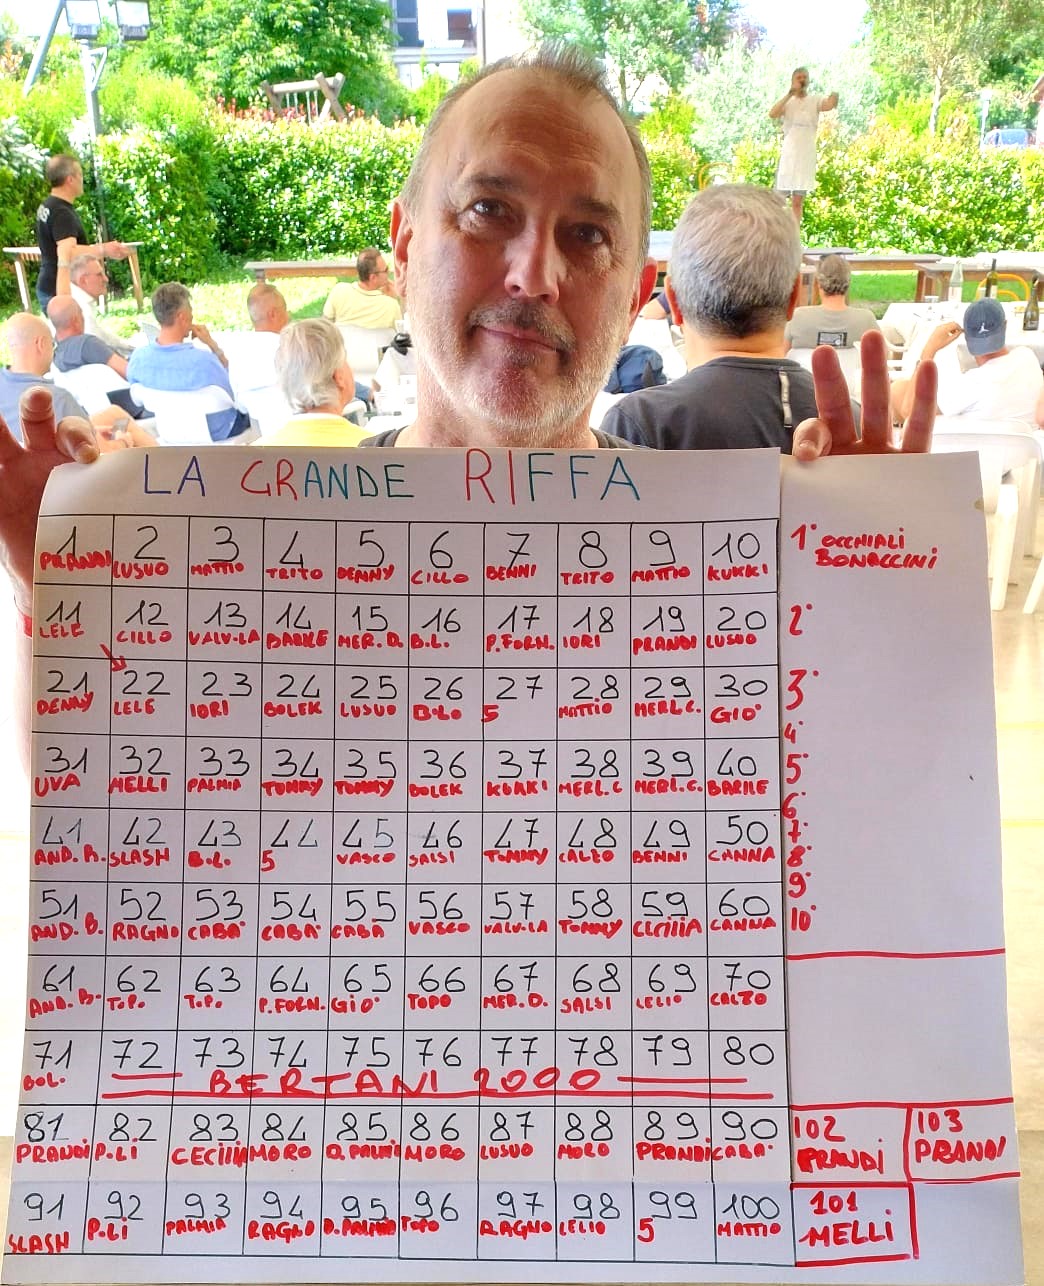 LA GRANDE RIFFA
1 2 3 4 5 6 7 8 9 10
PRANDI LUSUO MATTIO TRITO DENNY CILLO BENNI TRITO MATTIO KUKKI
11 12 13 14 15 16 17 18 19 20
LELE CILLO VALV-LA BARILE MER. D. B.L. P.FORN. IORI PRANDI LUSUO
21 22 23 24 25 26 27 28 29 30
DENNY LELE IORI BOLEK LUSUO B.LO 5 MATTIO MERL.C. GIO'
31 32 33 34 35 36 37 38 39 40
UVA MELLI PALMIA TOMMY TOMMY BOLEK KUKKI MERL.C MERL.C. BARILE
41 42 43 44 45 46 47 48 49 50
AND. B. SLASH B.L. 5 VASCO SALSI TOMMY CALZO BENNI CANNA
51 52 53 54 55 56 57 58 59 60
AND. B. RAGNO CABA' CABA' CABA VASCO VALV-LA TOMMY CECILIA CANNA
61 62 63 64 65 66 67 68 69 70
AND. B. T.P. T.P. P.FORN. GIO' TOPO MER. D. SALSI LELIO CALZO
71 72 73 74 75 76 77 78 79 80
BOL. BERTANI 2000
81 82 83 84 85 86 87 88 89 90
PRANDI P.LI CECILIA MORO D.PALMI MORO LUSUO MORO PRANDI CABA'
91 92 93 94 95 96 97 98 99 100
SLASH P.LI PALMIA RAGNO TOPO RAGNO LELIO 5 MATTIO
1° OCCHIALI
BONACCINI
2°
3°
4°
5°
6°
7°
8°
9°
10°
102 103
PRANDI PRANDI
101
MELLI